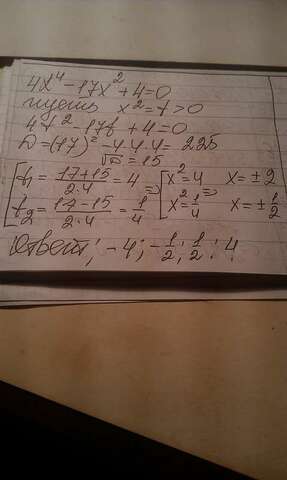 4x⁴ - 17x² + 4 = 0
пусть x² = t > 0
4t² - 17t + 4 = 0
D = (17)² - 4·4·4 = 225
√D = 15
t₁ = (17+15)/(2·4) = 4 ⇒ x² = 4 x = ±2
t₂ = (17-15)/(2·4) = 1/4 x² = 1/4 ⇒ x = ±1/2
Ответ: -4; -1/2; 1/2; 4